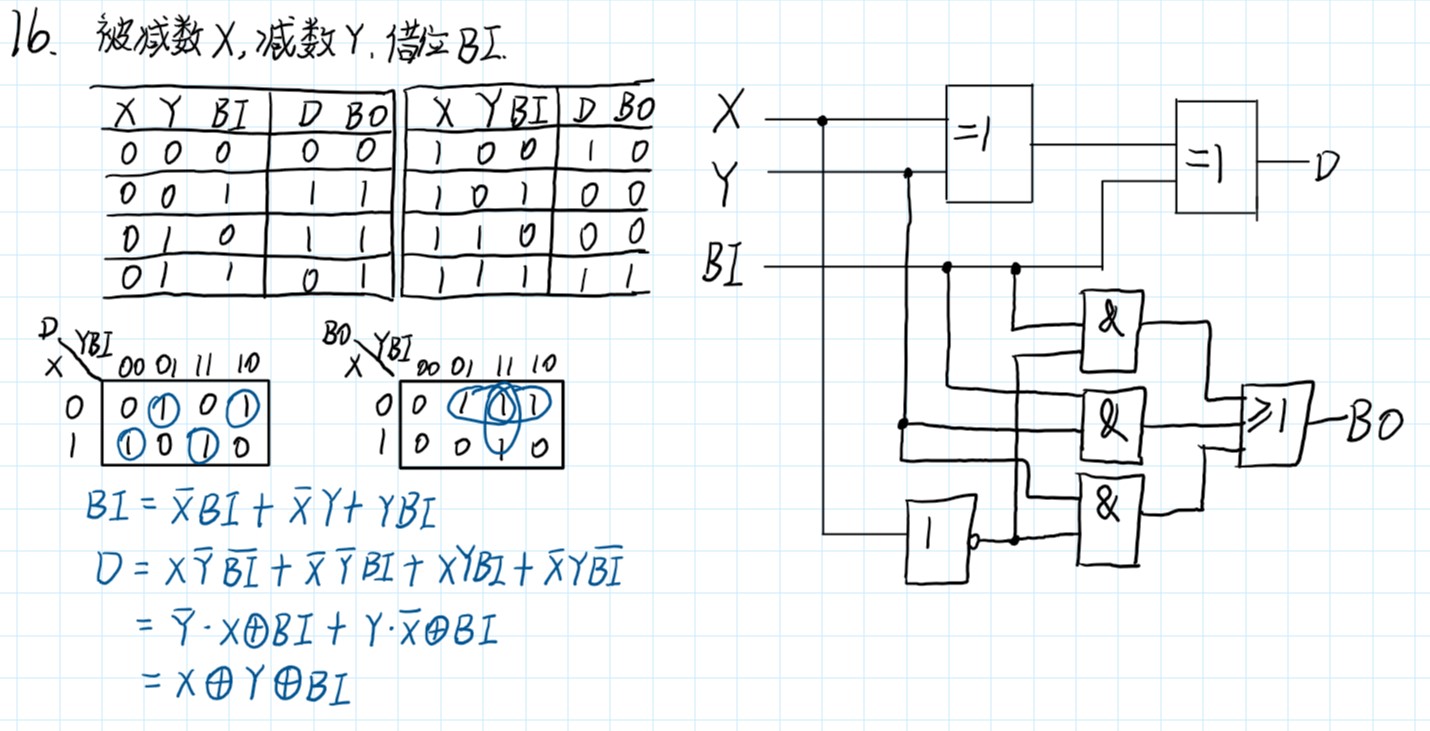 16. 被减数X,减数Y,借位BI.
X Y BI D BO X Y BI D BO
0 0 0 0 0 1 0 0 1 0
0 0 1 1 1 1 0 1 0 0
0 1 0 1 1 1 1 0 0 0
0 1 1 0 1 1 1 1 1 1
D YBI
X 00 01 11 10
0 0 1 0 1
1 1 0 1 0
BO YBI
X 00 01 11 10
0 0 1 1 1
1 0 0 1 0
BI = X̅BI + X̅Y + YBI
D = XY̅B̅I̅ + X̅Y̅BI + XYBI + X̅YB̅I̅
= Y̅·X⊕BI + Y·X̅⊕BI
= X⊕Y⊕BI
X
Y
BI
=1
=1
D
&
&
&
1
≥1
BO